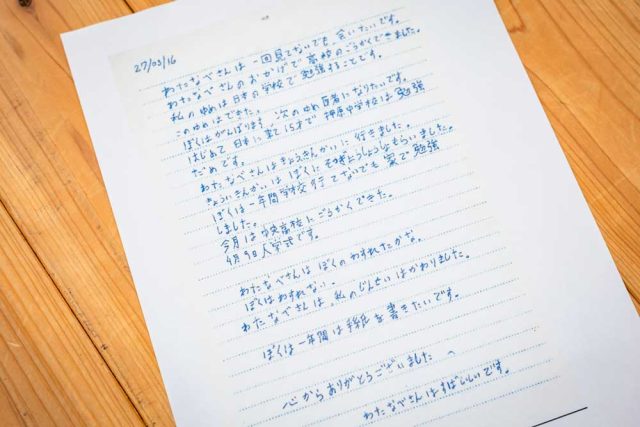 27/03/16
わたなべさんは一回見てないでも会いたいです。
わたなべさんのおかげで高校のごうかくできました。
私のゆめは日本の学校で勉強することです。
このゆめはできた。
ぼくはがんばります。次のゆめ医者になりたいです。
はじめて日本に来て15才で 中学校は勉強
だめです。
わたなべさんはきょうういくいいんかいに行きました。
ぼくは一年間学校行てないでも家で勉強
しました。
今月は中央高校にごうかくできた。
4月9日入学式です。
わたなべさんはぼくのわすれたかな。
ぼくはわすれない。
わたなべさんは、私のじんせいはかわりました。
ぼくは一年間は手紙を書きたいです。
心からありがとうございました
わたなべさんはすばいいです。